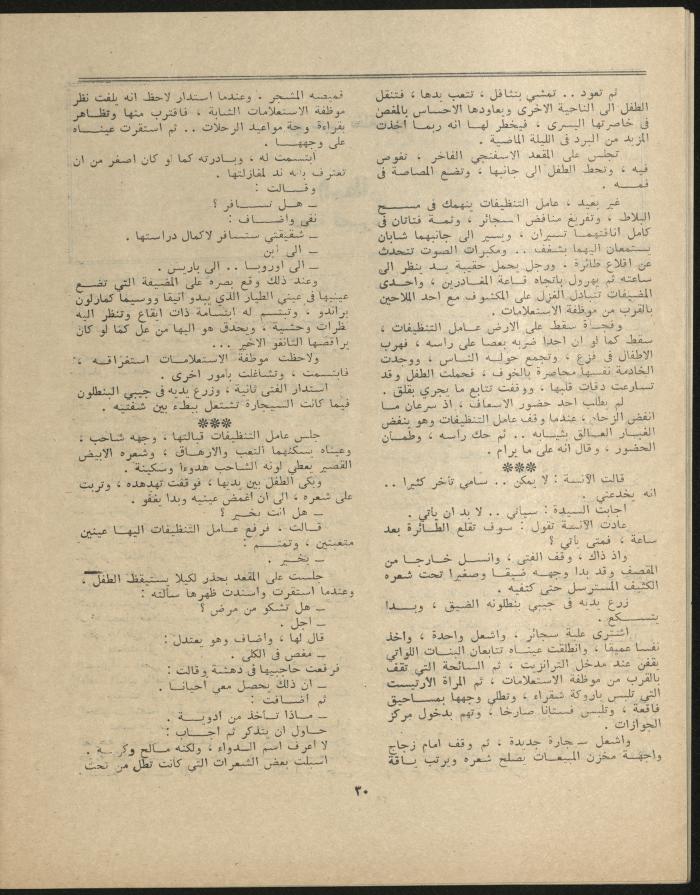 ثم تعود .. تمشي بتثاقل ، تتعب يدها ، فتنقل
الطفل الى الناحية الاخرى ويعاودها الاحساس بالمغص
في خاصرتها اليسرى ، فيخطر لها انه ربما أخذت
المزيد من البرد في الليلة الماضية .
تجلس على المقعد الاسفنجي الفاخر ، تغوص
فيه ، وتحط الطفل الى جانبها ، وتضع المصاصة في
فمه .
غير بعيد ، عامل التنظيفات ينهمك في مسح
البلاط ، وتفريغ منافض السجائر ، وثمة فتاتان في
كامل اناقتهما تسيران ، ويسير الى جانبهما شابان
يستمعان اليهما بشغف .. ومكبرات الصوت تتحدث
عن اقلاع طائرة ، ورجل يحمل حقيبة يد ينظر الى
ساعته ثم يهرول باتجاه قاعة المغادرين ، واحدى
المضيفات تتبادل الغزل على المكشوف مع احد الملاحين
بالقرب من موظفة الاستعلامات .
وفجأة سقط على الارض عامل التنظيفات ،
سقط كما لو ان احدا ضربه بعصا على راسه ، فهرب
الاطفال في فزع ، وتجمع حوله الناس ، ووجدت
الخادمة نفسها محاصرة بالخوف ، فحملت الطفل وقد
تسارعت دقات قلبها ، ووقفت تتابع ما يجري بقلق .
لم يطلب احد حضور الاسعاف ، اذ سرعان ما
انفض الزحام ، عندما وقف عامل التنظيفات وهو ينفض
الغبار العالق بثيابه .. ثم حك راسه ، وطمأن
الحضور ، وقال انه على ما يرام .
***
قالت الآنسة : لا يمكن .. سامي تأخر كثيرا ..
انه يخدعني .
اجابت السيدة : سيأتي .. لا بد ان يأتي .
عادت الآنسة تقول : سوف تقلع الطائرة بعد
ساعة ، فمتى يأتي ؟
واذ ذاك ، وقف الفتى ، وانسل خارجا من
المقصف وقد بدا وجهه ضيقا وصغيرا تحت شعره
الكثيف المسترسل حتى كتفيه .
زرع يديه في جيبي بنطلونه الضيق ، وبدا
يتسكع .
اشترى علبة سجائر ، واشعل واحدة ، واخذ
نفسا عميقا ، وانطلقت عيناه تتابعان البنات اللواتي
يقفن عند مدخل الترانزيت ، ثم السائحة التي تقف
بالقرب من موظفة الاستعلامات ، ثم المراة الارتيست
التي تلبس باروكة شقراء ، وتطلي وجهها بمساحيق
فاقعة ، وتلبس فستانا صارخا ، وتهم بدخول مركز
الجوازات .
واشعل سيجارة جديدة ، ثم وقف امام زجاج
واجهة مخزن المبيعات يصلح شعره ويرتب ياقة
قميصه المشجر . وعندما استدار لاحظ انه يلفت نظر
موظفة الاستعلامات الشابة ، فاقترب منها وتظاهر
بقراءة لوحة مواعيد الرحلات .. ثم استقرت عيناه
على وجهها .
ابتسمت له ، وبادرته كما لو كان اصغر من ان
تعترف بأنه ند لمغازلتها .
وقالت :
ــ هل تسافر ؟
نفى واضاف :
ــ شقيقتي ستسافر لاكمال دراستها .
ــ الى أين
ــ الى اوروبا .. الى باريس .
وعند ذلك وقع بصره على المضيفة التي تضع
عينيها في عيني الطيار الذي يبدو أنيقا ووسيما كمارلون
براندو ، وتبتسم له ابتسامة ذات ايقاع وتنظر اليه
نظرات وحشية ، ويحدق هو اليها من عل كما لو كان
يراقصها التانغو الاخير ...
ولاحظت موظفة الاستعلامات استغراقه ،
فابتسمت ، وتشاغلت بأمور اخرى .
استدار الفتى ثانية ، وزرع يديه في جيبي البنطلون
فيما كانت السيجارة تشتعل ببطء بين شفتيه .
***
جلس عامل التنظيفات قبالتها ، وجهه شاحب ،
وعيناه يسكنهما التعب والارهاق ، وشعره الابيض
القصير يعطي لونه الشاحب هدوءا وسكينة .
وبكى الطفل بين يديها ، فوقفت تهدهده ، وتربت
على شعره ، الى ان اغمض عينيه وبدا يغفو .
ــ هل انت بخير ؟
قالت . فرفع عامل التنظيفات اليها عينين
متعبتين ، وتمتم :
ــ بخير .
جلست على المقعد بحذر لكيلا يستيقظ الطفل ،
وعندما استقرت واسندت ظهرها سألته :
ــ هل تشكو من مرض ؟
ــ اجل .
قال لها ، واضاف وهو يعتدل :
ــ مغص في الكلى .
فرفعت حاجبيها في دهشة وقالت :
ــ ان ذلك يحصل معي أحيانا .
ثم اضافت :
ــ ماذا تأخذ من أدوية .
حاول ان يتذكر ثم اجاب :
لا اعرف اسم الدواء ، ولكنه مالح وكريه .
اسبلت بعض الشعرات التي كانت تطل من تحت
٣٠